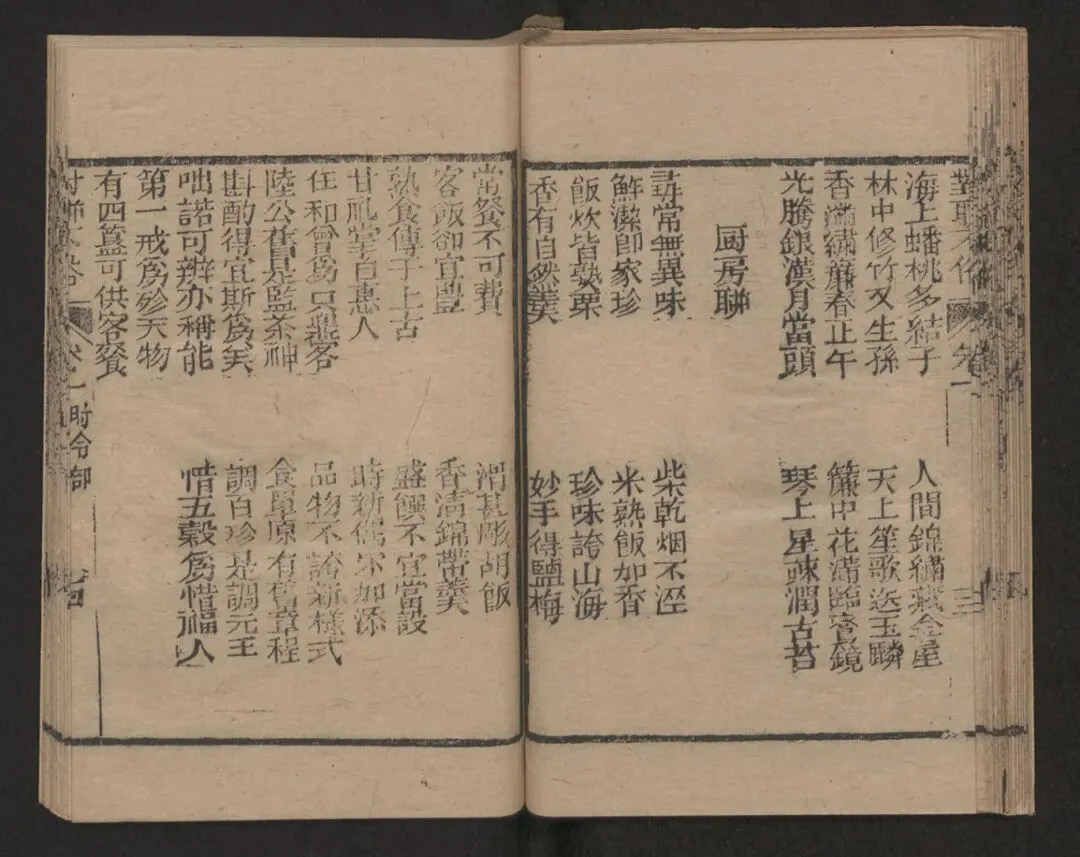 卷一
海上蟠桃多結子 人間錦繡金屋
林中修竹又生孫 天上笙歌送玉麟
香滿繡簾春正午 簾中花滿臨奩鏡
光騰銀漢月當頭 琴上星疎潤古苔
厨房聯
尋常無異味 柴乾烟不溼
鮮潔即家珍 米熟飯如香
飯炊皆孰栗 珍味誇山海
香有自然羹 妙手得鹽梅
常餐不可費 滑甚彫胡飯
客飯卻宜豐 香清錦帶羹
熟食傳子上古 盛饌不宜當設
甘祀掌自惠人 時新偶加添
任和曾為只客 品物不誇新樣式
陸公舊是監茶神 食單原有舊章程
斟酌得宜斯為美 調百珍是調元王
咄諾可辨亦稱能 惜五穀為惜福人
第一戒為殄天物
有四簋可供客餐
卷一 時令部